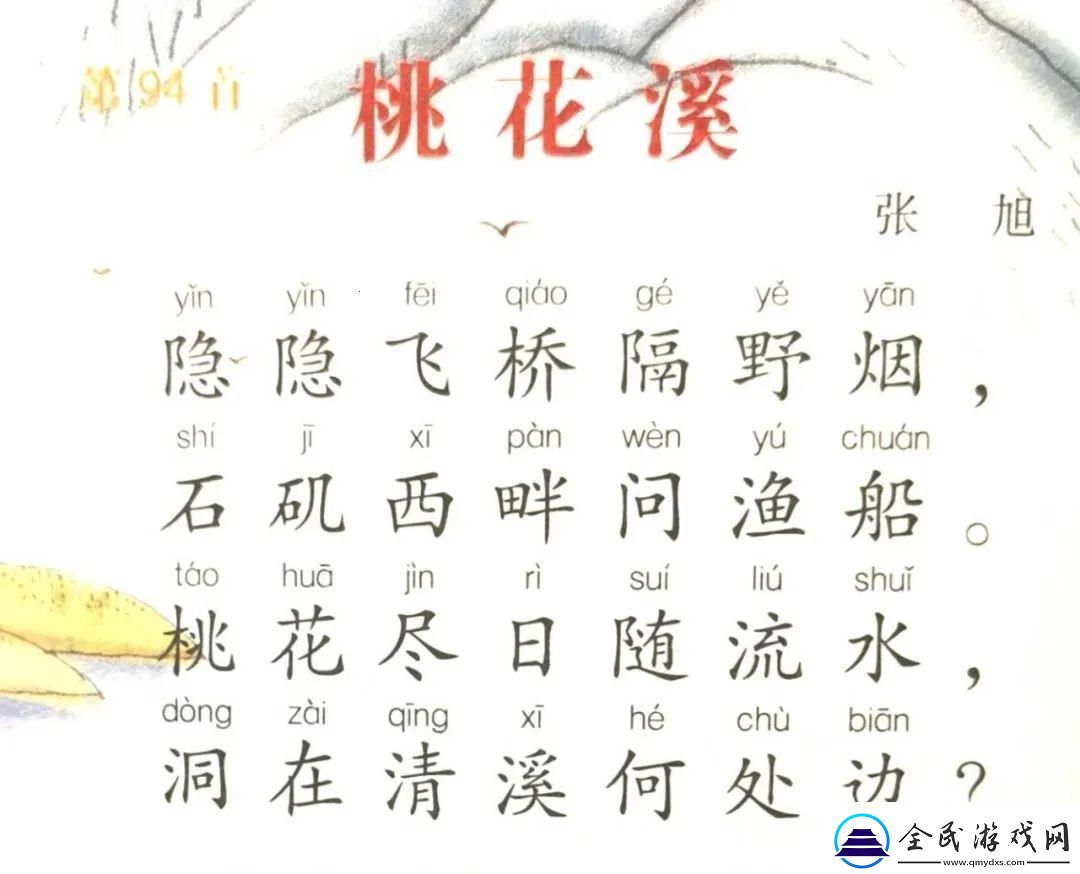 第94首
桃花溪
张 旭
yǐn yǐn fēi qiáo gé yě yān
隐隐飞桥隔野烟，
shí jī xī pàn wèn yú chuán
石矶西畔问渔船。
táo huā jìn rì suí liú shuǐ
桃花尽日随流水，
dòng zài qīng xī hé chù biān
洞在清溪何处边？
全民游戏网
www.qmydxs.com